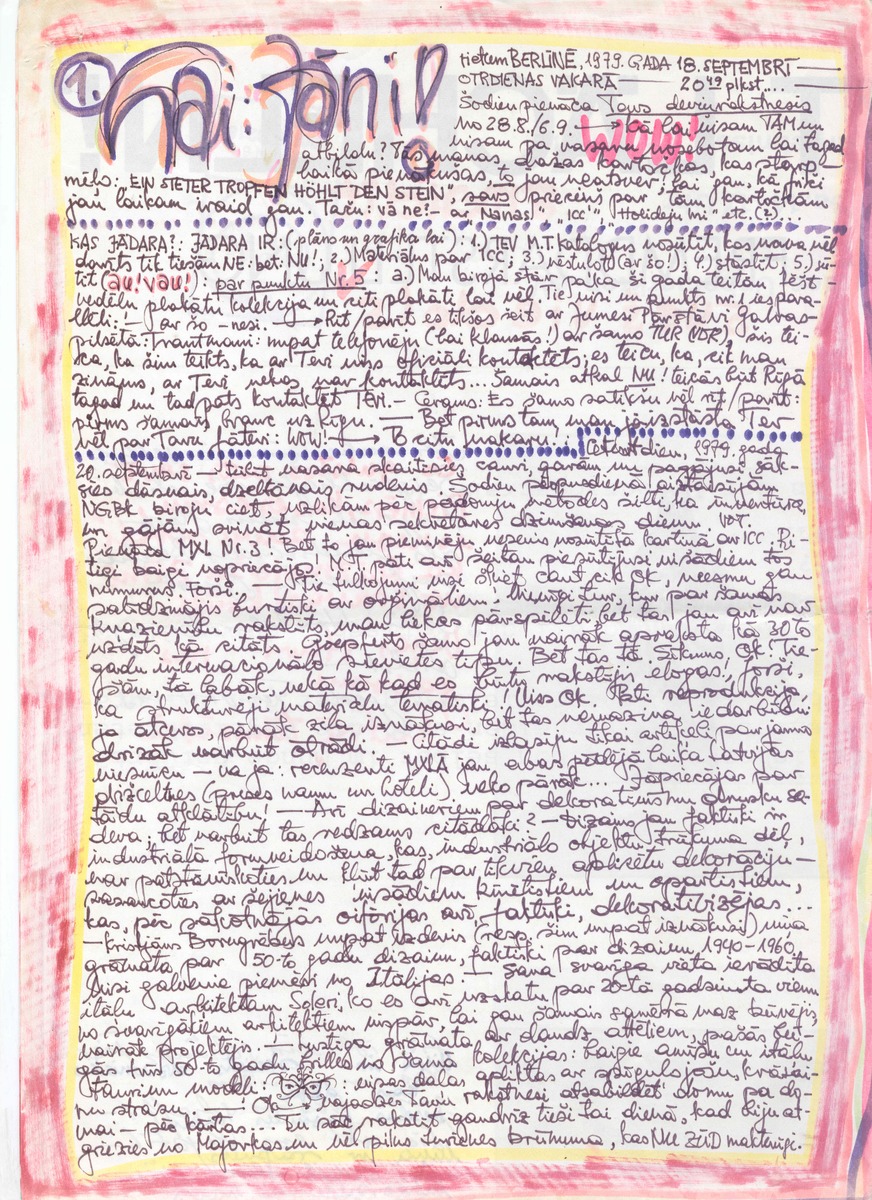 1. Hai: Jāni!
tiekam BERLĪNĒ, 1979. GADA 18. SEPTEMBRĪ —
OTRDIENAS VAKARĀ — 20⁴⁹ plkst....
Šodien pienāca Tavs deviņrakstnesis
no 28.8./6.9. — WOW! lai visam TAM un
visam pa vasaru nosebotam lai tagad
atbildu? Tās manas, dažas kartiņas, kas starp-
laikā pienākušas, to jau neatsver, lai gan, kā mēdz
mēlo: "EIN STETER TROPFEN HÖHLT DEN STEIN", savs prieciņš par tām kartiņām
jau laikam ir gan. Taču: vā ne! — ar "Nanas" "ICC" "Holideju Ini" etc. (?)...
KAS JĀDARA?: JĀDARA IR: (plāns un grafika lai): 1.) TEV M.T. katalogus nosūtīt, kas nava vēl
darīts tik tiešām NE: bet: NU!, 2.) Materiālus par ICC; 3.) vēstuļot (ar šo!); 4.) stāstīt; 5.) sū-
tīt (au! vau!): par punktu Nr. 5: a.) Manā birojā stāv paika šī gada teitān, fest-
nedēļu plakātu kolekcija un citi plakāti lai vēl. Tie visi un punkts nr. 1 iespara-
lēli! — ar šo -nesi. → Rīt/parīt es tikšos šeit ar
pilsētā: Trautmani: mupat telefonēju (lai klausās!) ar šamo šis tei-
ca, ka šim teikts, ka ar Tevi viss oficiāli kontaktēts, es teicu, ka, cik man
zināms, ar Tevi nekas nav kontaktēts... Šamais atkal NU! teicās būt Rīgā
tagad un tad pats kontaktēt TEVI. — Ceram: Es šamo satikšu vēl rīt/parīt:
pirms šamais brauc uz Rīgu. — Bet pirms tam man jāizstāsta Tev
vēl par Tavu fāteri: WOW! → B citu vakaru!
Ceturtdien, 1979. gada
20. septembrī — tikko vasara skaitījās cauri, garām un pagājusi, sāk-
zies dāsnais, dzeltānais rudenis. Šodien pēcpusdienā aiztaisījām
NGBK biroju ciet, uzlikām par padomju metodes šilti, ka inventūra,
un gājām svinēt vienas sekretāres dzimšanas dienu. VOT.
Pienāca MXL Nr. 3! Bet to jau pieminēju nesenis nosūtītā kartiņā ar ICC. Ri-
tīgi baigi nopriecājos! M.T. pati arī šeitan piesūtījusi visādiem tos
numurus. Forši. — Tie tulkojumi visi šķiet daut cik OK, neesmu gan
palīdzinājis burtiski ar oriģināliem. Vienīgi tur, kur par šamās
kundzenību rakstīts, man liekas pārspīlēti, bet tas jau arī nav
uzdots kā citāts. Grephuts šamo jau vairāk apraksta kā 30-to
gadu internacionālo sievietes tipu. Bet tas tā. Sīkums. Ok! Tie-
šām, tā labāk, nekā kā kad es būtu rakstījis elogas!, forši,
ka strukturēji materiālu tematiski! Viss Ok. Pati reprodukcija,
ja atceros, pārāk zila iznākusi, bet tas nemazina iedarbību
drīzāk varbūt otrādi. — Citādi izlasīju tikai artiķeli par jaunos
viesnīcu — va ja: recenzenti MXLĀ jau abas pēdējā laikā Latvijas
dižceltnes (preses namu un hoteli), neko pārāk... Jāpriecājas par
tāidu atklātību! — Arī dizaineriem par dekoratīvismu drusku sa-
deva; bet varbūt tas redzams citādāki? — Dizains jau faktiski ir
industriālā formveidošana, kas, industriālo objektu trūkuma dēļ,
nav patstāvīkoties un kļūst tad par tīkvēļu aplicētu dekorāciju —
sazancoties ar šejienes visādiem kinētistiem un opartistiem,
kas, pēc sākotnējās eiforijas arī, faktiski, dekorativizējas...
— Kristjāns Borngrēbers mupat izdevis (resp. šim mupat iznākusi) viņa
grāmata par 50-to gadu dizainu, faktiski par dizainu, 1940–1960,
visi galvenie piemēri no Itālijas! — Šanā svarīga vieta ierādīta
itāļu arhitektam Soleri, ko es arī uzskatu par 20-tā gadsimta vienu
no svarīgākiem arhitektiem vispār, lai gan šamais samērā maz būvējis,
vairāk projektējis. — Lustīga grāmata ar daudz attēliem, pašās bei-
gās trīs 50-to gadu brilles no šamā kolekcijas: baigie amīšu un itāļu
taureņu modeļi: : virsas daļas apliktas ar spīguļojošu, krāsai-
nu strasu. — Ok → Vajadzēs Tavu rakstnesi atsabildēt domu pa do-
mai — pēc kārtas... Tu sāc rakstīt gandrīz tieši tai dienā, kad biju at-
griezies no Majorkas un vēl pilns brūnuma, kas NU ZŪD maktenīgi.